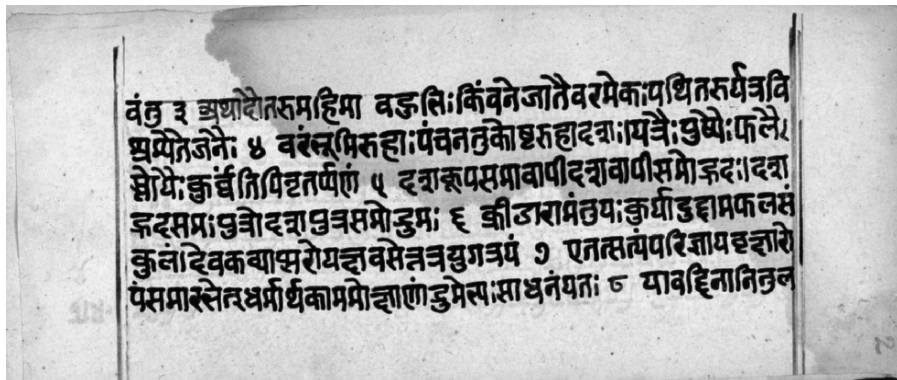 वंतु ३ अथादौतरुमहिमा वहुभिः किंवनेजातैवरमेकः पथितरुर्यत्रवि
श्रम्यतेजनैः ४ वरंभूमिरुहाः पंचनतुकोष्टरुहादश ।पत्रैः पुष्पैः फलै
स्तोयैः कुर्वंतिपितृतर्पणं ५ दशकूपसमावापीदशवापीसमोह्रदः ।दश
ह्रदसमः पुत्रोदशपुत्रसमोद्रुमः ६ क्रीडारामंतुयः कुर्याद्दुद्दामफलसं
कुलंदेवकव्याप्सरोयज्ञवसेत्तत्रयुगत्रयं ७ एतत्सत्यंपरिज्ञायवृक्षारो
पंसमारभेत्धर्मार्थकाममोक्षाणंद्रुमेभ्यः साधनंयतः ८ यावद्दिनानितुल